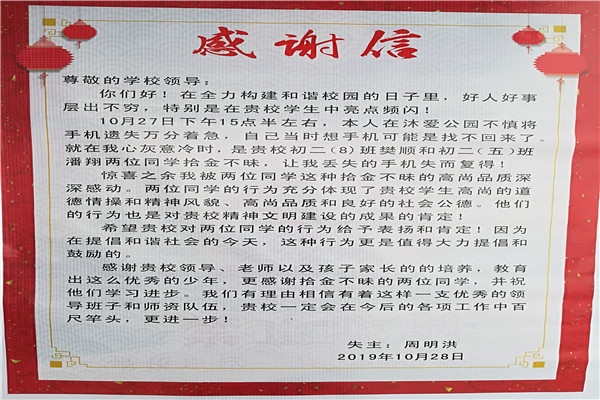 感谢信
尊敬的学校领导:
你们好!在全力构建和谐校园的日子里,好人好事
层出不穷,特别是在贵校学生中亮点频闪!
10月27日下午15点半左右,本人在沐爱公园不慎将
手机遗失万分着急,自己当时想手机可能是找不回来了。
就在我心灰意冷时,是贵校初二(8)班樊顺和初二(五)班
潘翔两位同学拾金不昧,让我丢失的手机失而复得!
惊喜之余我被两位同学这种拾金不昧的高尚品质深
深感动。两位同学的行为充分体现了贵校学生高尚的道
德情操和精神风貌、高尚品质和良好的社会公德。他们
的行为也是对贵校精神文明建设的成果的肯定!
希望贵校对两位同学的行为给予表扬和肯定!因为
在提倡和谐社会的今天,这种行为更是值得大力提倡和
鼓励的。
感谢贵校领导、老师以及孩子家长的的培养,教育
出这么优秀的少年,更感谢拾金不昧的两位同学,并祝
他们学习进步。我们有理由相信有着这样一支优秀的领
导班子和师资队伍,贵校一定会在今后的各项工作中百
尺竿头,更进一步!
失主:周明洪
2019年10月28日